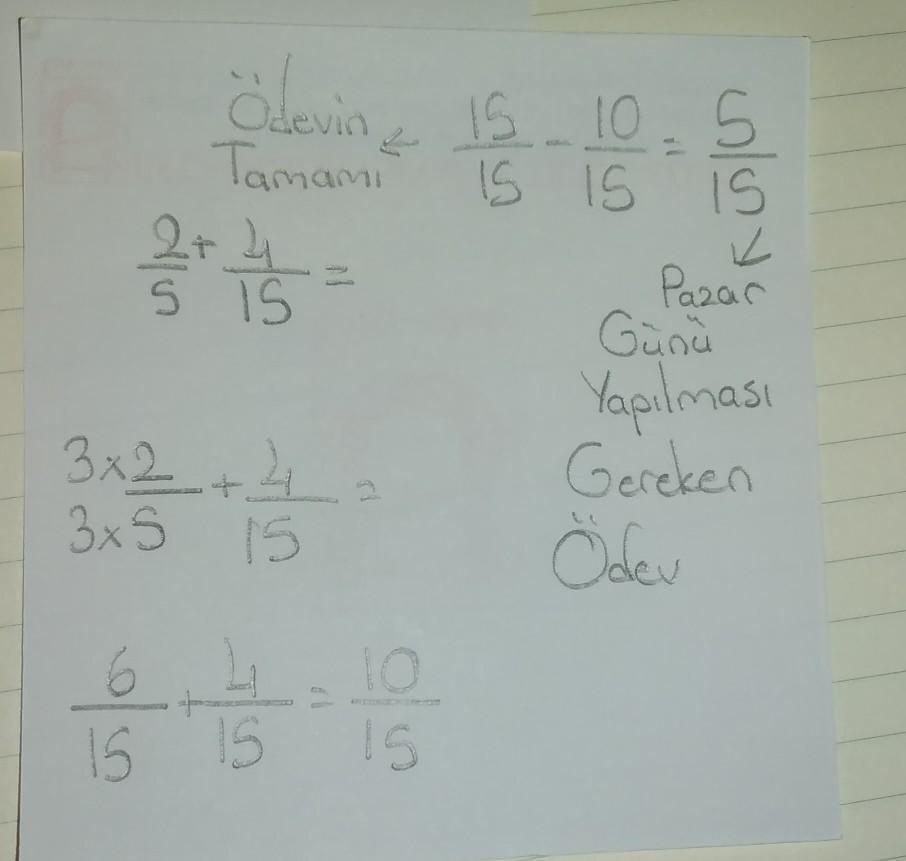 Ödevin
Tamamı ← 15/15 - 10/15 = 5/15
2/5 + 4/15 =
Pazar
Günü
Yapılması
Gereken
Ödev
3x2/3x5 + 4/15 =
6/15 + 4/15 = 10/15